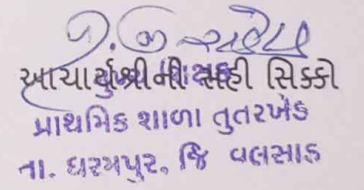 આચાર્યશ્રીની સહી સિક્કો
પ્રાથમિક શાળા તુતરખેડ
તા. ધરમપુર, જિ વલસાડ